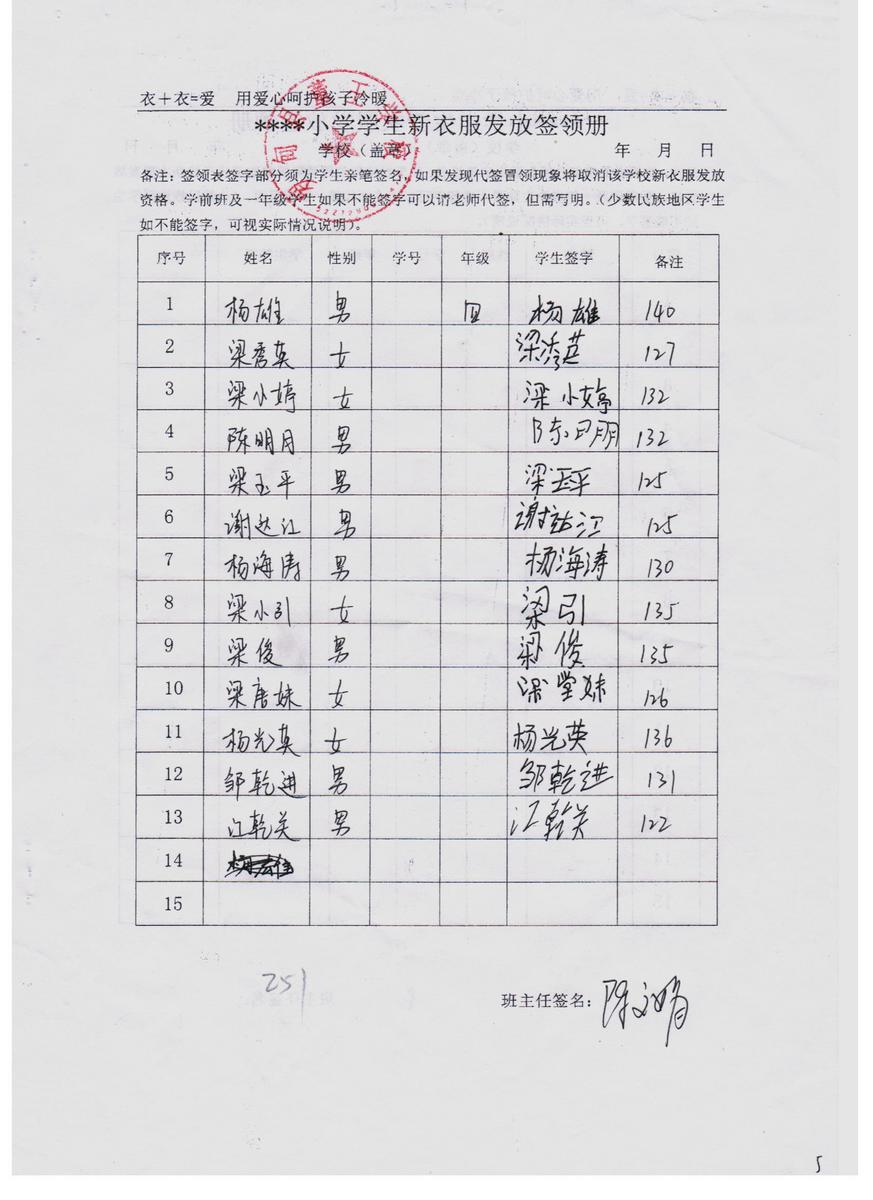 衣+衣=爱 用爱心呵护孩子冷暖
****小学学生新衣服发放签领册
学校（盖章） 年 月 日
备注：签领表签字部分须为学生亲笔签名，如果发现代签冒领现象将取消该学校新衣服发放
资格。学前班及一年级学生如果不能签字可以请老师代签，但需写明。（少数民族地区学生
如不能签字，可视实际情况说明）。
序号 姓名 性别 学号 年级 学生签字 备注
1 杨雄 男 四 杨雄 140
2 梁秀英 女 梁秀英 127
3 梁小婷 女 梁小婷 132
4 陈明月 男 陈明月 132
5 梁玉平 男 梁玉平 125
6 谢达江 男 谢达江 125
7 杨海涛 男 杨海涛 130
8 梁小引 女 梁引 135
9 梁俊 男 梁俊 135
10 梁唐妹 女 梁堂妹 126
11 杨光英 女 杨光英 136
12 邹乾进 男 邹乾进 131
13 江乾关 男 江乾关 122
14
15
251
班主任签名：陈文娟
5